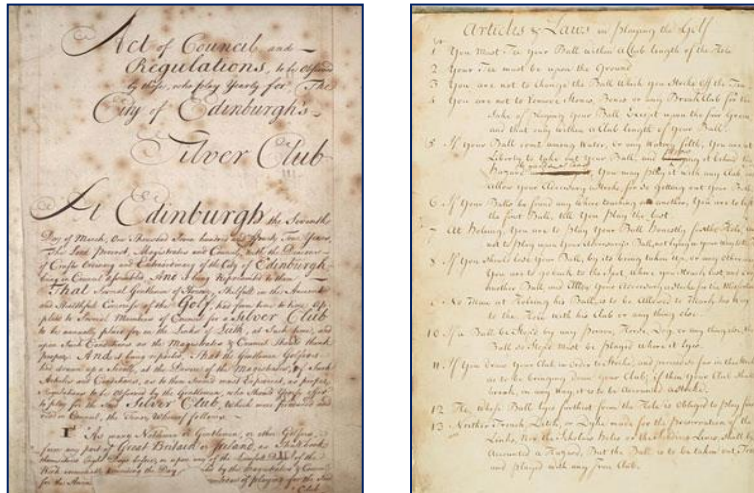 Act of Council and
Regulations, to be observed
by those, who play Yearly for, The
City of Edinburgh's
Silver Club
At Edinburgh the Seventh
Day of March, One Thousand Seven hundred and Years,
The Lord Provost, Magistrates and Council, with the Deacons
of Crafts Ordinary and Extraordinary of the City of Edinburgh
being in Council Assembled, And it being Represented to them
That Several Gentlemen of Honour, Skillfull in the Ancient
and Healthfull Exercise of the Golf, had from time to time Ap-
plied to Several Members of Council for a Silver Club
to be annually played for on the Links of Leith, at such time, and
upon such Conditions as the Magistrates & Council should think
proper. And it being reported, That the Gentlemen Golfers
had drawn up a Scroll, at the Desire of the Magistrates, of such
Articles and Conditions, as to them Seemed most Expedient, as proper
Regulations to be observed by the Gentlemen, who should Yearly offer
to play for the said Silver Club, which were produced and
read in Council, the Tenor Whereof follows.
1st As many Noblemen or Gentlemen, or other Golfers
from any part of Great Britain or Ireland, as Shall book
themselves Eight Days before, or upon any of the Lawfull Days of the
Week immediately preceeding the Day by the Magistrates & Council
for the Annual
Articles & Laws in Playing the Golf
1 You Must Tee your Ball within a Club length of the Hole
2 Your Tee must be upon the Ground
3 You are not to Change the Ball which you Strike off the Tee
4 You are not to Remove Stones, Bones or any Break Club for the
Sake of playing your Ball Except upon the fair Green
and that only within a Club length of your Ball
5 If your Ball come among Water, or any Watery filth, you are at
Liberty to take out your Ball, and it behind the
Hazard you may play it with any Club and
allow your Adversary a Stroke, for so getting out your Ball
6 If your Balls be found any where touching one another, You are to lift
the first Ball, till you play the last
7 At Holeing, You are to play your Ball honestly for the Hole, and
not to play upon your Adversary's Ball, not lying in your way to the
8 If you should lose your Ball, by its being taken up, or any other way
You are to go back to the Spot, where you Struck last, and drop
another Ball, and Allow your Adversary a Stroke for the Misfortune
9 No Man at Holeing his Ball, is to be Allowed to Mark his way
to the Hole with his Club or any thing else
10 If a Ball be Stop'd by any person, Horse, Dog, or any thing else, the
Ball so Stop'd Must be played where it lyes
11 If you draw your Club in Order to Strike, and proceed so far in the Stroke
as to be bringing down your Club; if then your Club shall
break, in any way, it is to be Accounted a Stroke
12 He, Whose Ball lyes farthest from the Hole is Obliged to play first
13 Neither Trench, Ditch, or Dyke made for the preservation of the
Links, Nor the Scholars Holes or the Soldiers Lines, shall be
Accounted a Hazard, But the Ball is to be taken out, Teed
and played with any Iron Club